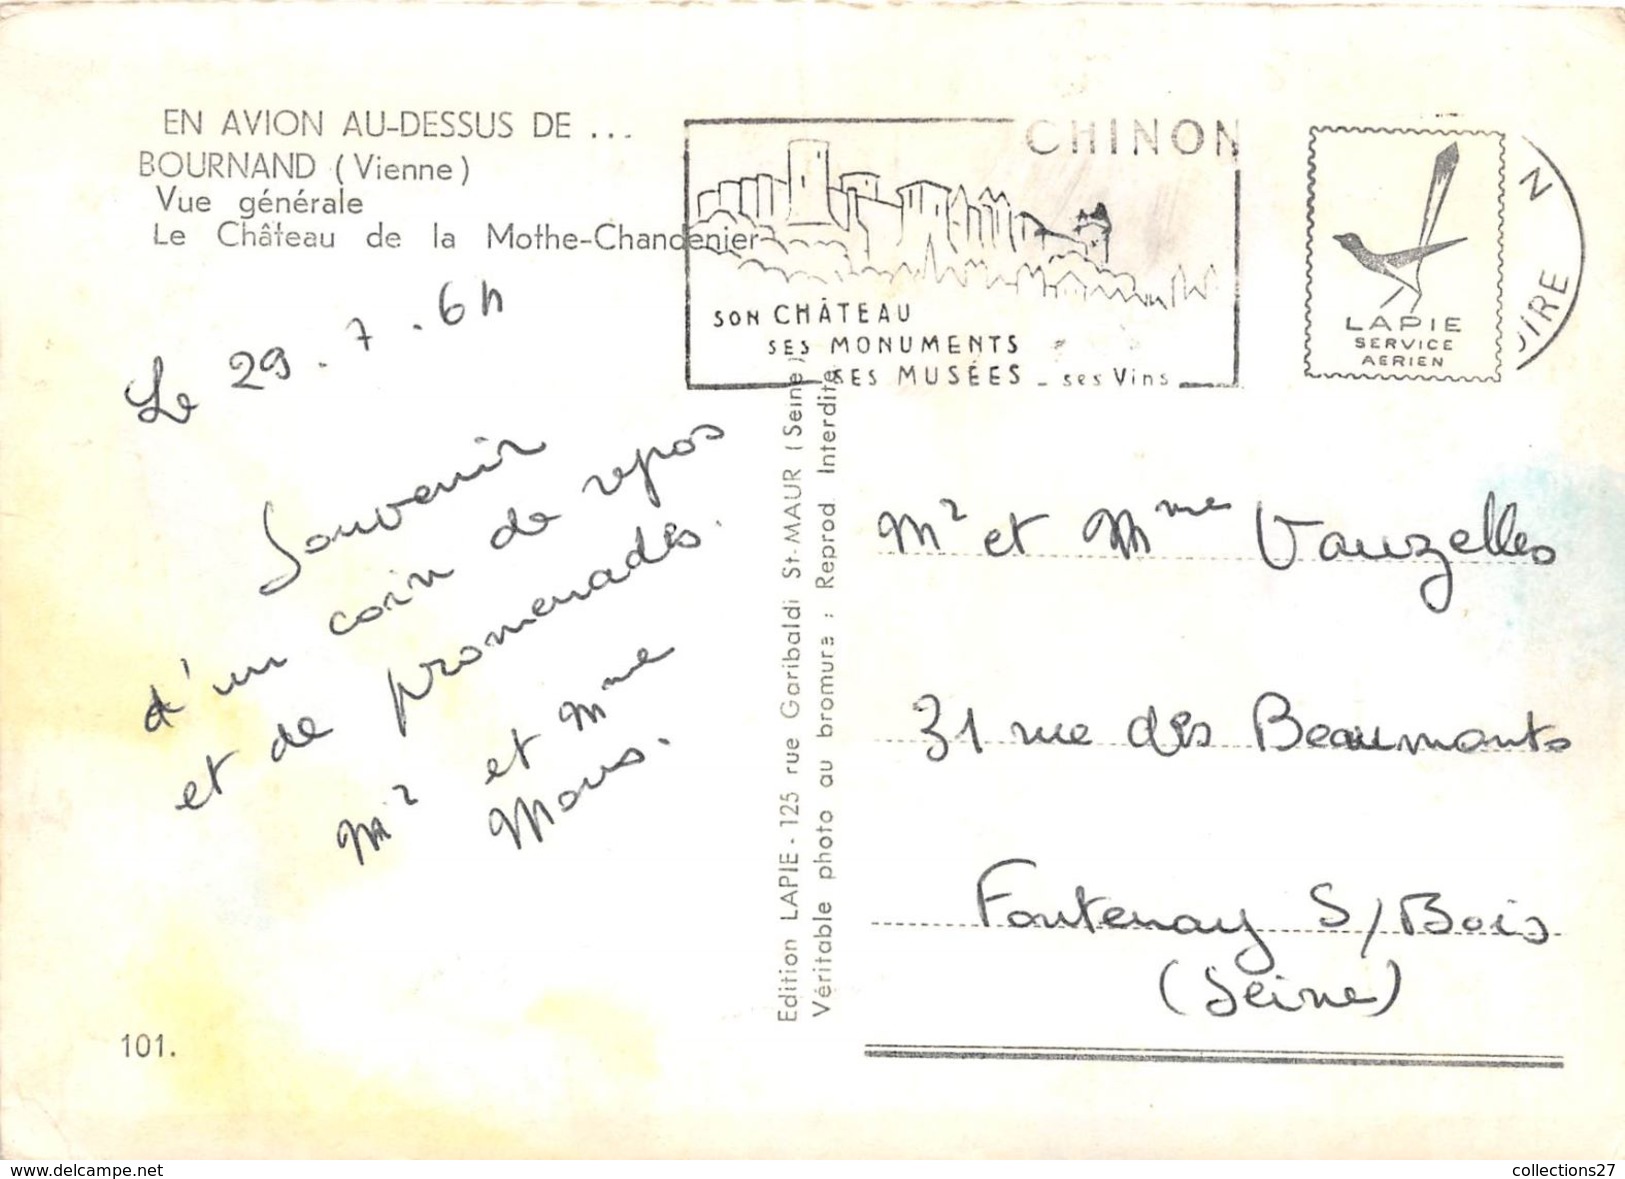 EN AVION AU-DESSUS DE ...
BOURNAND (Vienne)
Vue générale
Le Château de la Mothe-Chandenier
CHINON
SON CHÂTEAU
SES MONUMENTS
SES MUSÉES - ses Vins
LAPIE
SERVICE
AERIEN
N
OIRE
Le 29.7.64
Souvenir
d'un coin de repos
et de promenades.
Mr et Mme
Edition LAPIE - 125 rue Garibaldi St-MAUR (Seine)
Véritable photo au bromure : Reprod. Interdite
Mr et Mme Vauzelles
31 rue des Beaumonts
Fontenay S/Bois
(Seine)
101.
www.delcampe.net
collections27